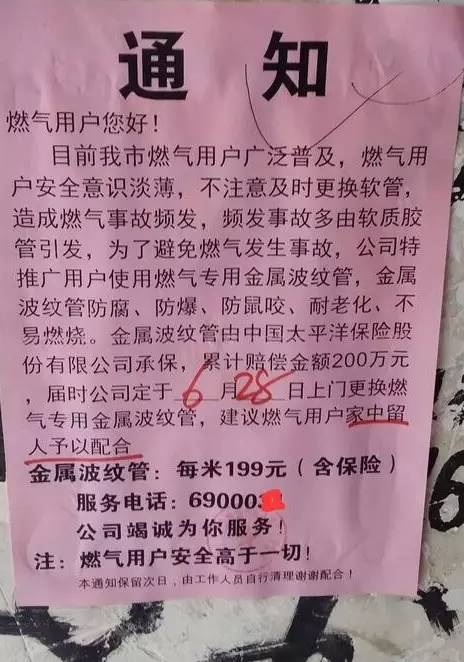 通知
燃气用户您好！
目前我市燃气用户广泛普及，燃气用
户安全意识淡薄，不注意及时更换软管，
造成燃气事故频发，频发事故多由软质胶
管引发，为了避免燃气发生事故，公司特
推广用户使用燃气专用金属波纹管，金属
波纹管防腐、防爆、防鼠咬、耐老化、不
易燃烧。金属波纹管由中国太平洋保险股
份有限公司承保，累计赔偿金额200万元
，届时公司定于 6 月 28 日上门更换燃
气专用金属波纹管，建议燃气用户家中留
人予以配合
金属波纹管：每米199元（含保险）
服务电话：69000
公司竭诚为你服务！
注：燃气用户安全高于一切！
本通知保留次日，由工作人员自行清理谢谢配合！